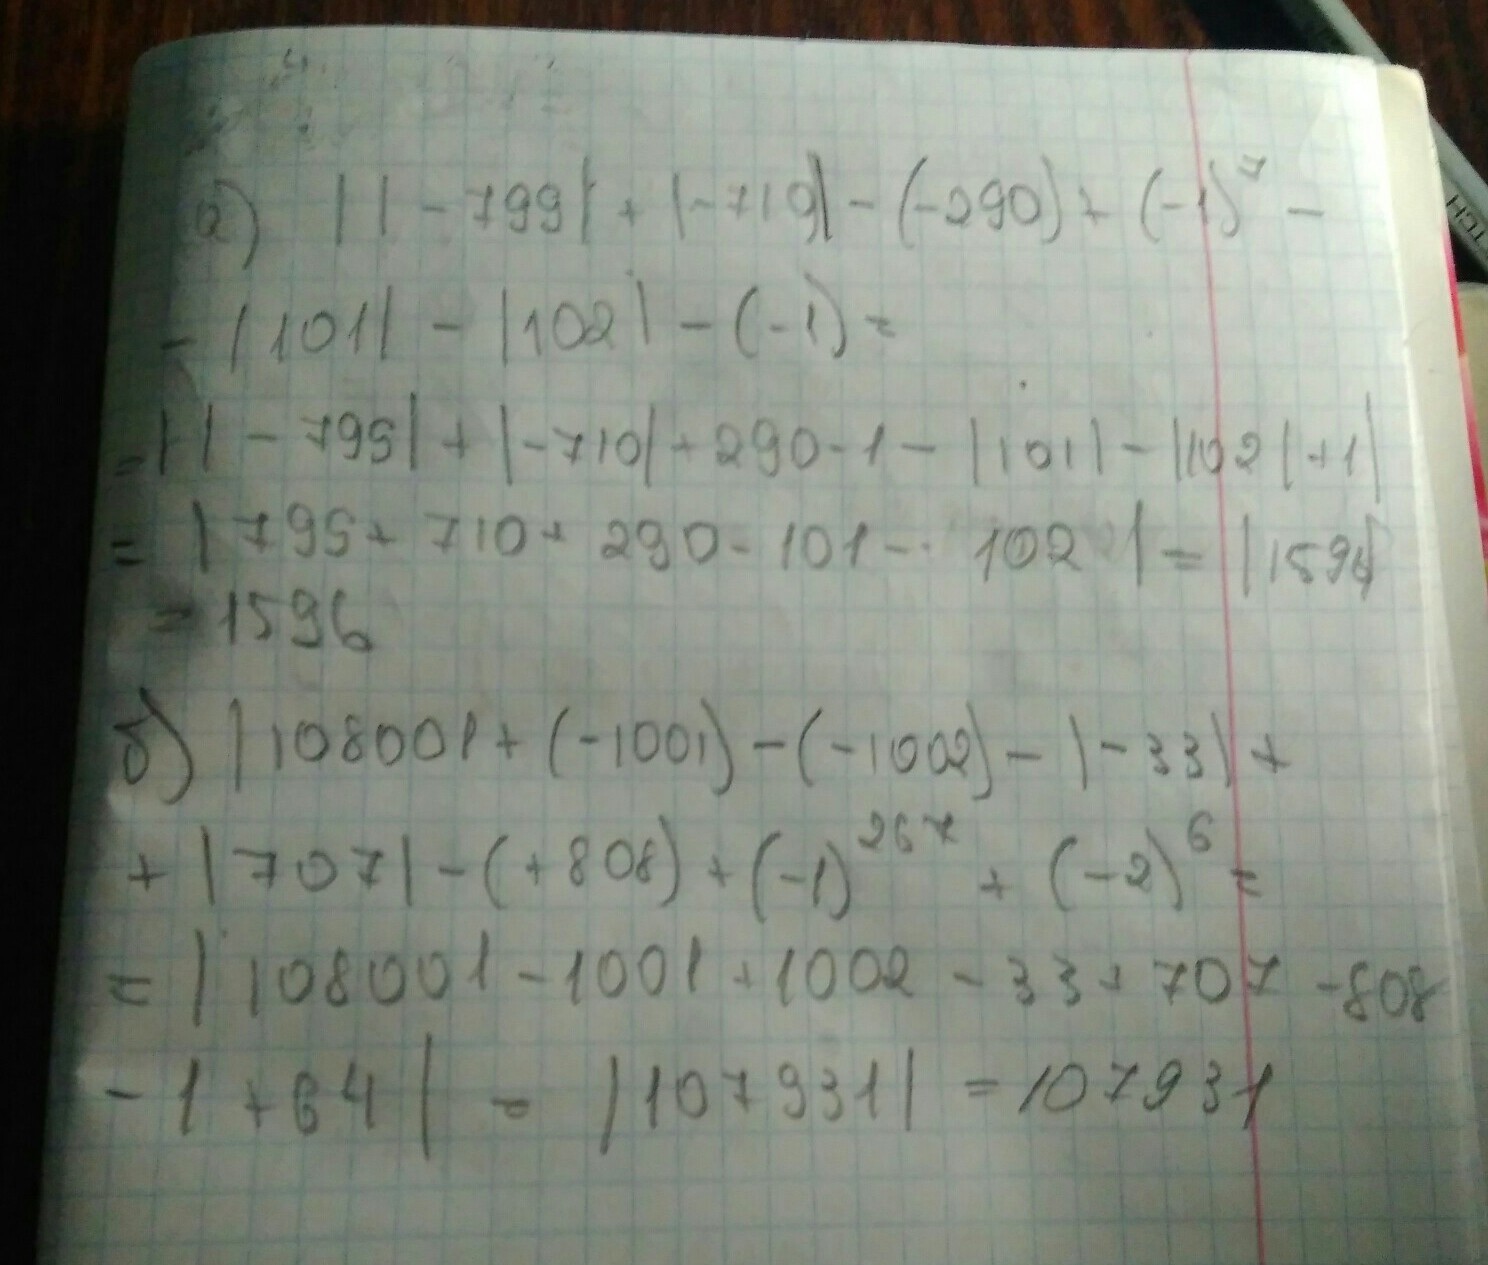 а) | | - 799| + |-719| - (-290) + (-1)⁴ -
- |101| - |102| - (-1) =
= | | - 799| + |-710| + 290 - 1 - |101| - |102| + 1|
= | 799 + 710 + 290 - 101 - 102 | = |1596|
= 1596
б) |108001 + (-1001) - (-1002) - |-33| +
+ |707| - (+808) + (-1)²⁶⁷ + (-2)⁶ =
= | 108001 - 1001 + 1002 - 33 + 707 - 808
- 1 + 64 | = |107931| = 107931
TCH